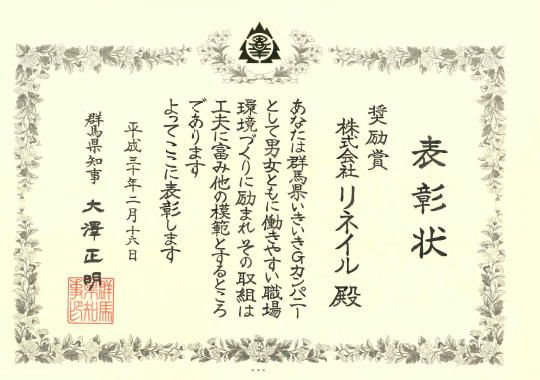 表彰状
奨励賞
株式会社 リネイル 殿
あなたは群馬県いきいきGカンパニー
として男女ともに働きやすい職場
環境づくりに励まれ その取組は
工夫に富み他の模範とするところ
であります
よってここに表彰します
平成三十年二月十六日
群馬県知事 大澤正明
群馬県知事之印